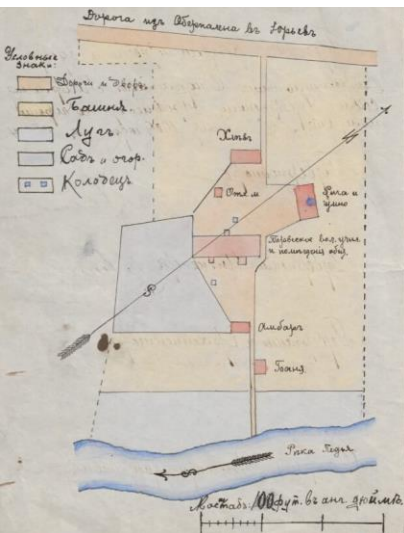 Дорога изъ Оберпалена въ Юрьевъ
Условные
знаки:
Дороги и Дворъ
Пашня
Лугъ
Садъ и огор.
Колодецъ
Хлѣвъ
Рига и
гумно
вол. учил.
и помѣщенія общ.
Амбаръ
Баня
S
Рѣка Педья
Мастабъ: 100 фут. въ анг. дюймѣ.